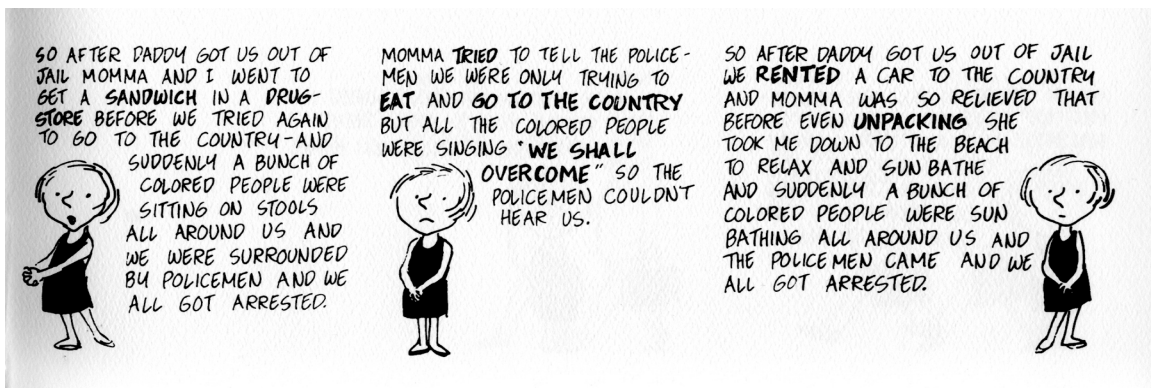 SO AFTER DADDY GOT US OUT OF
JAIL MOMMA AND I WENT TO
GET A SANDWICH IN A DRUG-
STORE BEFORE WE TRIED AGAIN
TO GO TO THE COUNTRY-AND
SUDDENLY A BUNCH OF
COLORED PEOPLE WERE
SITTING ON STOOLS
ALL AROUND US AND
WE WERE SURROUNDED
BY POLICEMEN AND WE
ALL GOT ARRESTED.
MOMMA TRIED TO TELL THE POLICE-
MEN WE WERE ONLY TRYING TO
EAT AND GO TO THE COUNTRY
BUT ALL THE COLORED PEOPLE
WERE SINGING "WE SHALL
OVERCOME" SO THE
POLICEMEN COULDN'T
HEAR US.
SO AFTER DADDY GOT US OUT OF JAIL
WE RENTED A CAR TO THE COUNTRY
AND MOMMA WAS SO RELIEVED THAT
BEFORE EVEN UNPACKING SHE
TOOK ME DOWN TO THE BEACH
TO RELAX AND SUN BATHE
AND SUDDENLY A BUNCH OF
COLORED PEOPLE WERE SUN
BATHING ALL AROUND US AND
THE POLICEMEN CAME AND WE
ALL GOT ARRESTED.